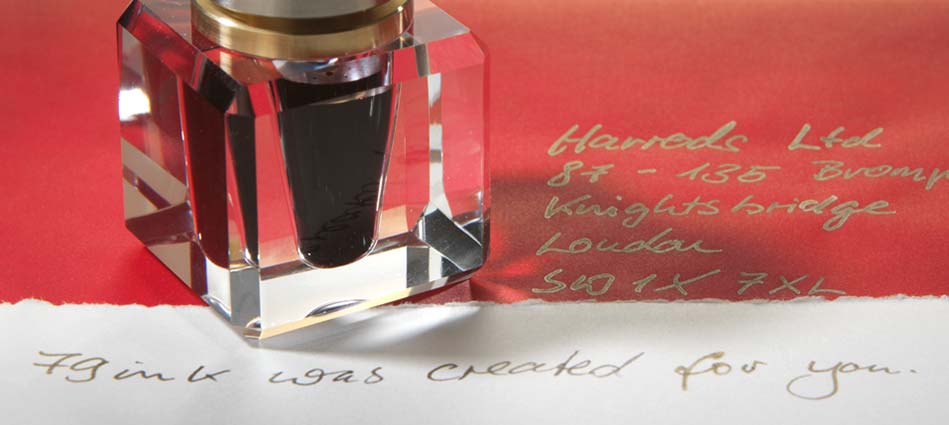 Harrods Ltd
87 - 135 Bromp
Knightsbridge
London
SW1X 7XL
79ink was created for you.